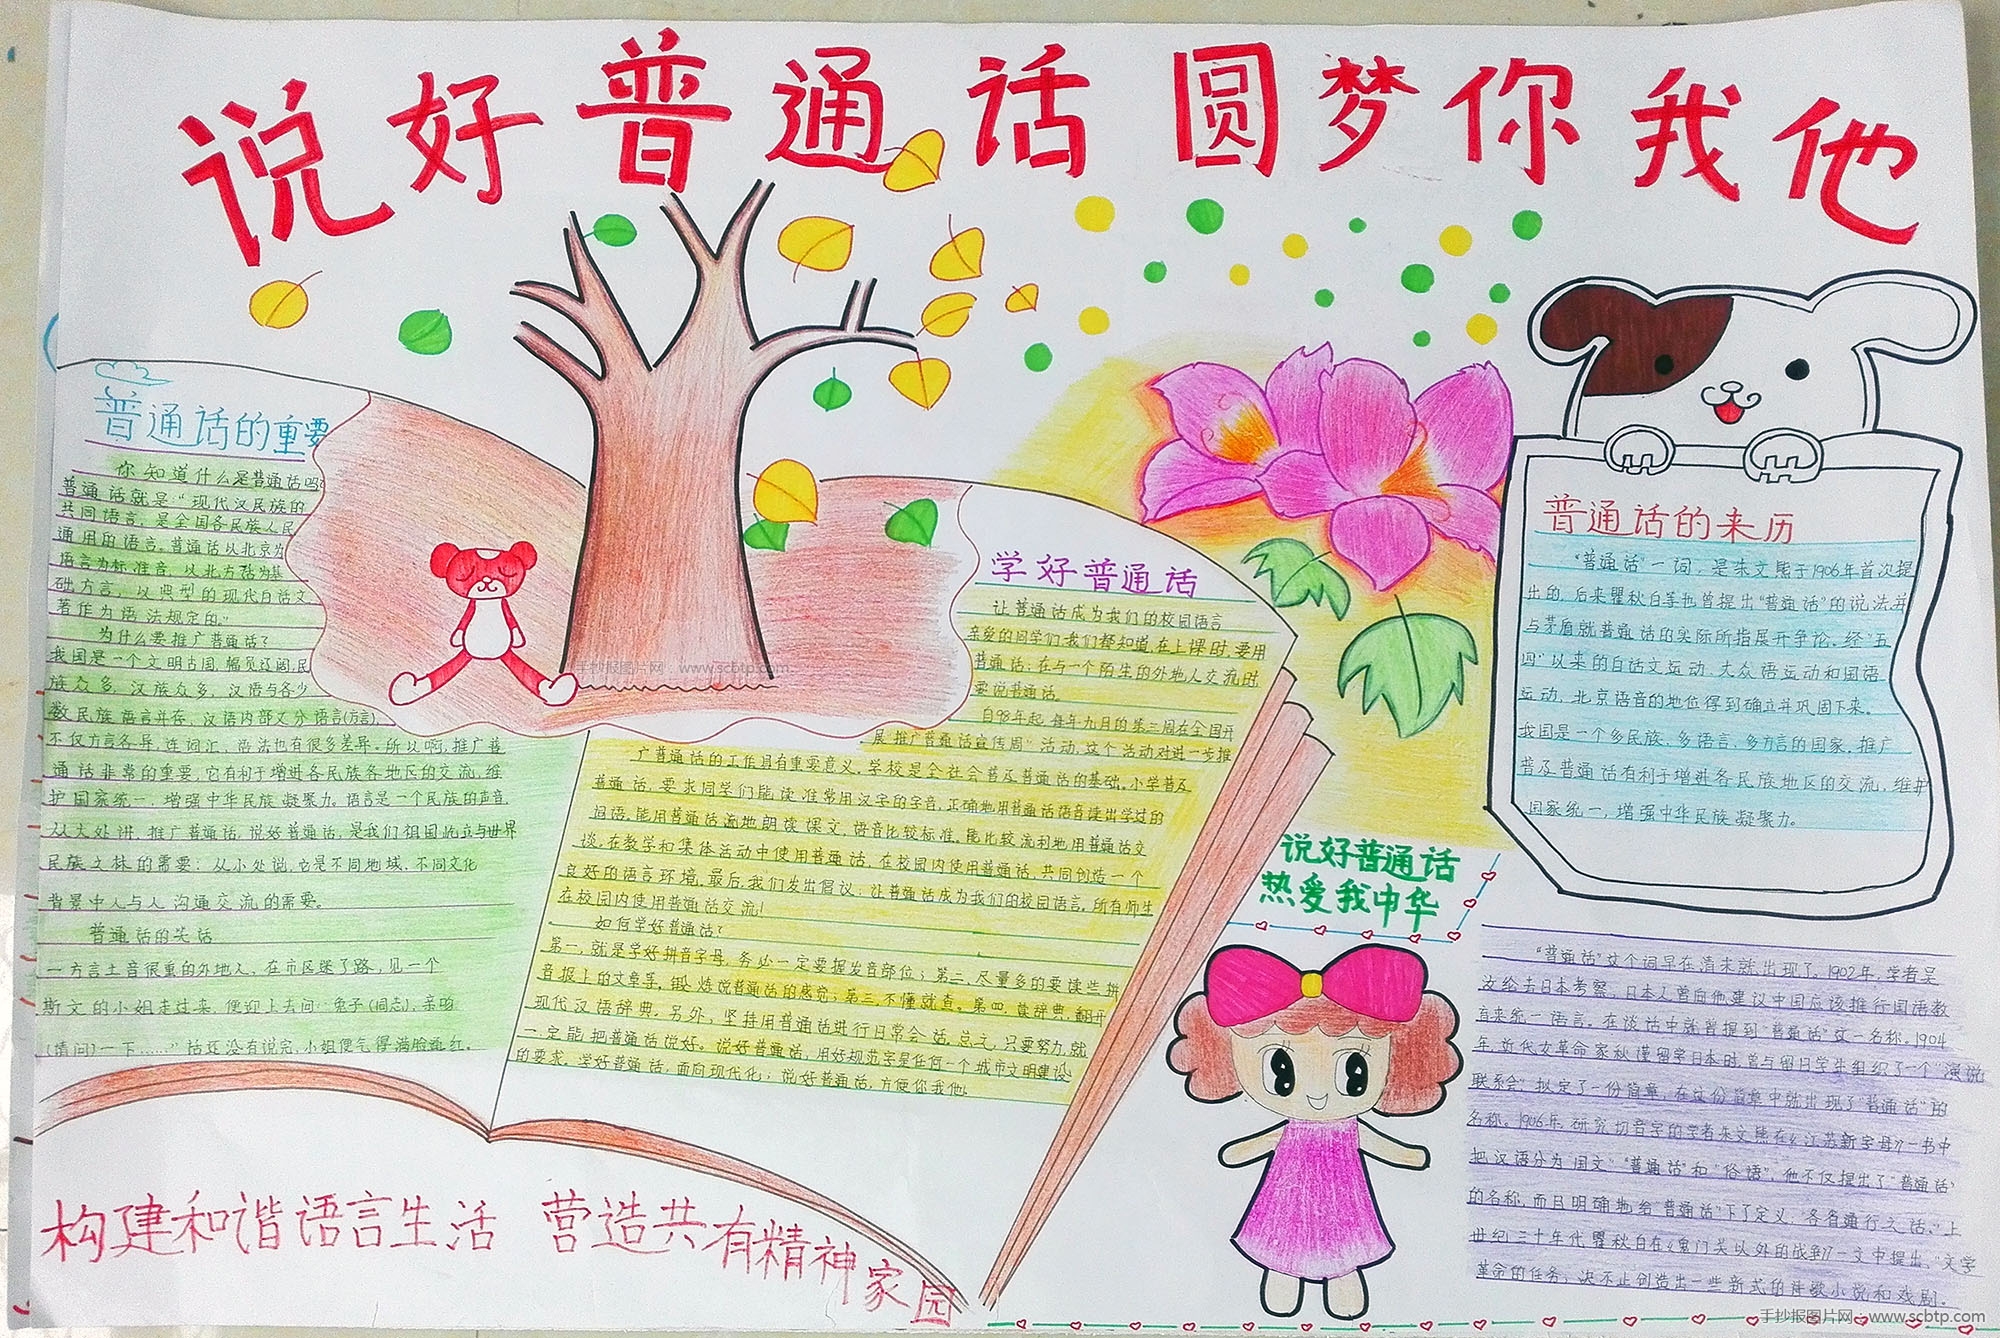 说好普通话 圆梦你我他
普通话的重要
你知道什么是普通话吗?
普通话就是“现代汉民族的
共同语言,是全国各民族人民
通用的语言。普通话以北京为
语言为标准音,以北方话为基
础方言,以典型的现代白话文
著作为语法规定的。”
为什么要推广普通话?
我国是一个文明古国,幅员辽阔,民
族众多,汉族众多,汉语与各少
数民族语言并存,汉语内部又分语言(方言),
不仅方言各异,连词汇、语法也有很多差异。所以啊,推广普
通话非常的重要,它有利于增进各民族各地区的交流,维
护国家统一,增强中华民族凝聚力。语言是一个民族的声音,
从大处讲,推广普通话,说好普通话,是我们祖国屹立与世界
民族之林的需要;从小处说,它是不同地域,不同文化
背景中人与人沟通交流的需要。
普通话的笑话
一方言土音很重的外地人,在市区迷了路,见一个
斯文的小姐走过来,便迎上去问:“兔子(同志),亲吻
(请问)一下……”话还没有说完,小姐便气得满脸通红。
学好普通话
让普通话成为我们的校园语言
亲爱的同学们我们都知道,在上课时,要用
普通话;在与一个陌生的外地人交流时
要说普通话。
自98年起,每年九月的第三周在全国开
展“推广普通话宣传周”活动,这个活动对进一步推
广普通话的工作具有重要意义,学校是全社会普及普通话的基础,小学普及
普通话,要求同学们能读准常用汉字的字音,正确地用普通话语音读出学过的
词语,能用普通话流畅地朗读课文,语音比较标准,能比较流利地用普通话交
谈,在教学和集体活动中使用普通话,在校园内使用普通话,共同创造一个
良好的语言环境,最后,我们发出倡议:让普通话成为我们的校园语言,所有师生
在校园内使用普通话交流!
如何学好普通话?
第一,就是学好拼音字母,务必一定要握发音部位;第二,尽量多的要读些拼
音报上的文章等,锻炼说普通话的感觉;第三,不懂就查。第四,读辞典,翻开
现代汉语辞典,另外,坚持用普通话进行日常会话,总之,只要努力,就
一定能把普通话说好。说好普通话,用好规范字是任何一个城市文明建设
的要求。学好普通话,面向现代化;说好普通话,方便你我他!
普通话的来历
“普通话”一词,是朱文熊于1906年首次提
出的,后来瞿秋白等也曾提出“普通话”的说法并
与茅盾就普通话的实际所指展开争论,经“五
四”以来的白话文运动、大众语运动和国语
运动,北京语音的地位得到确立并巩固下来。
我国是一个多民族,多语言,多方言的国家,推广
普及普通话有利于增进各民族地区的交流,维护
国家统一,增强中华民族凝聚力。
说好普通话
热爱我中华
“普通话”这个词早在清末就出现了。1902年,学者吴
汝纶去日本考察,日本人曾向他建议中国应该推行国语教
育来统一语言。在谈话中就曾提到“普通话”这一名称。1904
年,近代女革命家秋瑾留学日本时,曾与留日学生组织了一个“演说
联系会”,拟定了一份简章,在这份简章中就出现了“普通话”的
名称。1906年,研究切音字的学者朱文熊在《江苏新字母》一书中
把汉语分为“国文”、“普通话”和“俗语”,他不仅提出了“普通话”
的名称,而且明确地给“普通话”下了定义:“各省通行之话。”上
世纪三十年代瞿秋白在《鬼门关以外的战争》一文中提出,“文学
革命的任务,决不止创造出一些新式的诗歌小说和戏剧。
构建和谐语言生活 营造共有精神家园
手抄报图片网:www.scbtp.com
手抄报图片网:www.scbtp.com